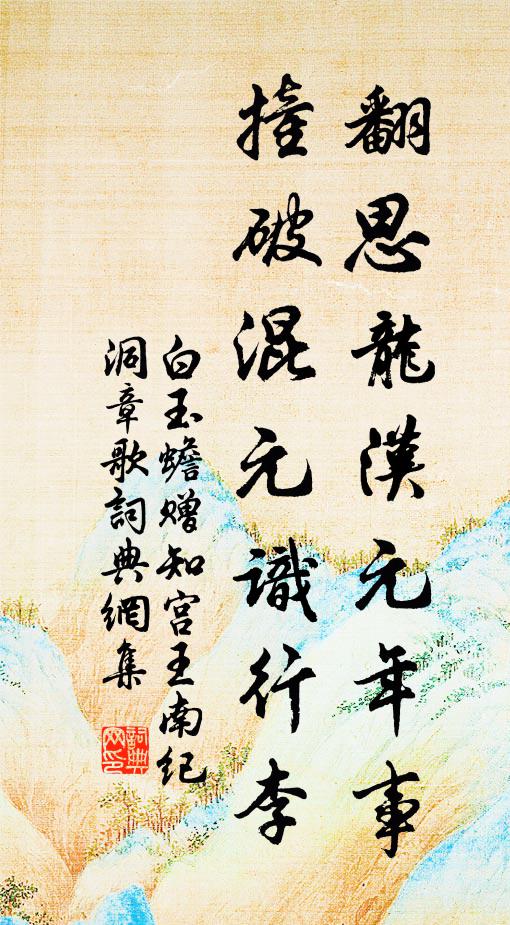 翻思龍漢元年事
撞破混元識行李
白玉蟾贈知宮王南紀
洞章歌詞典網集
詞典網印